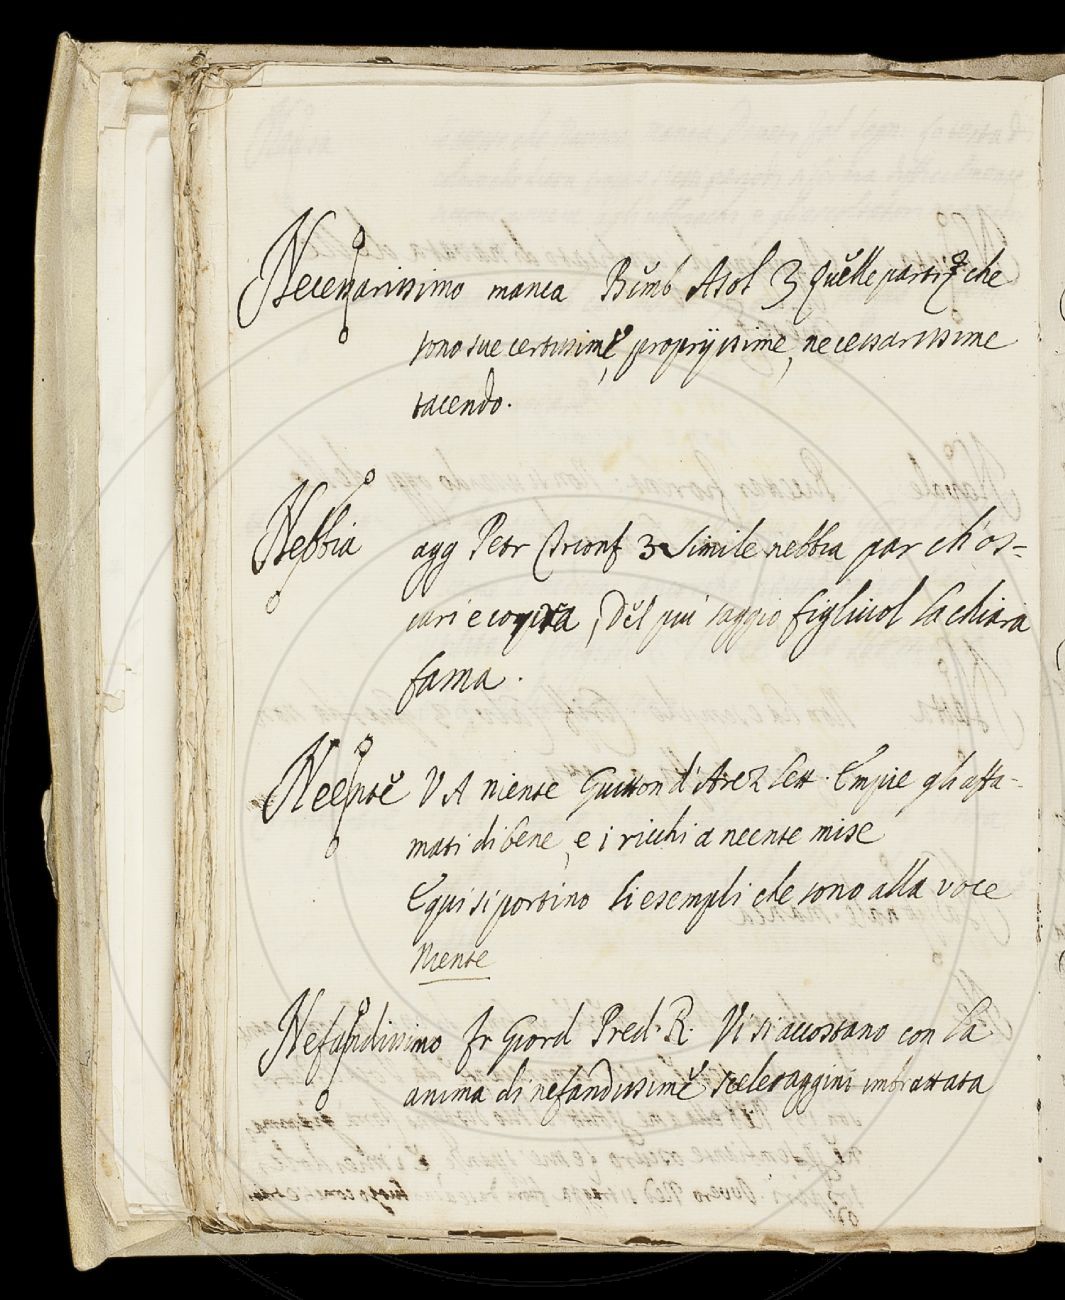 Necessarissimo manca Bemb Asol 3 Quelle parti che
sono sue certissime, proprijssime, necessarissime
tacendo.
Nebbia agg Petr Trionf 3 Simile nebbia par ch'os-
curi e copra, Del piu saggio figliuol la chiara
fama.
Neente V A niente Guitton d'Arez lett. Empie gli affa-
mati di bene, e i ricchi a neente mise
E qui si portino li esempli che sono alla voce
Niente
Nefandissimo fr Giord Pred. R. Vi si accostano con la
anima di nefandissime sceleraggini imbrattata